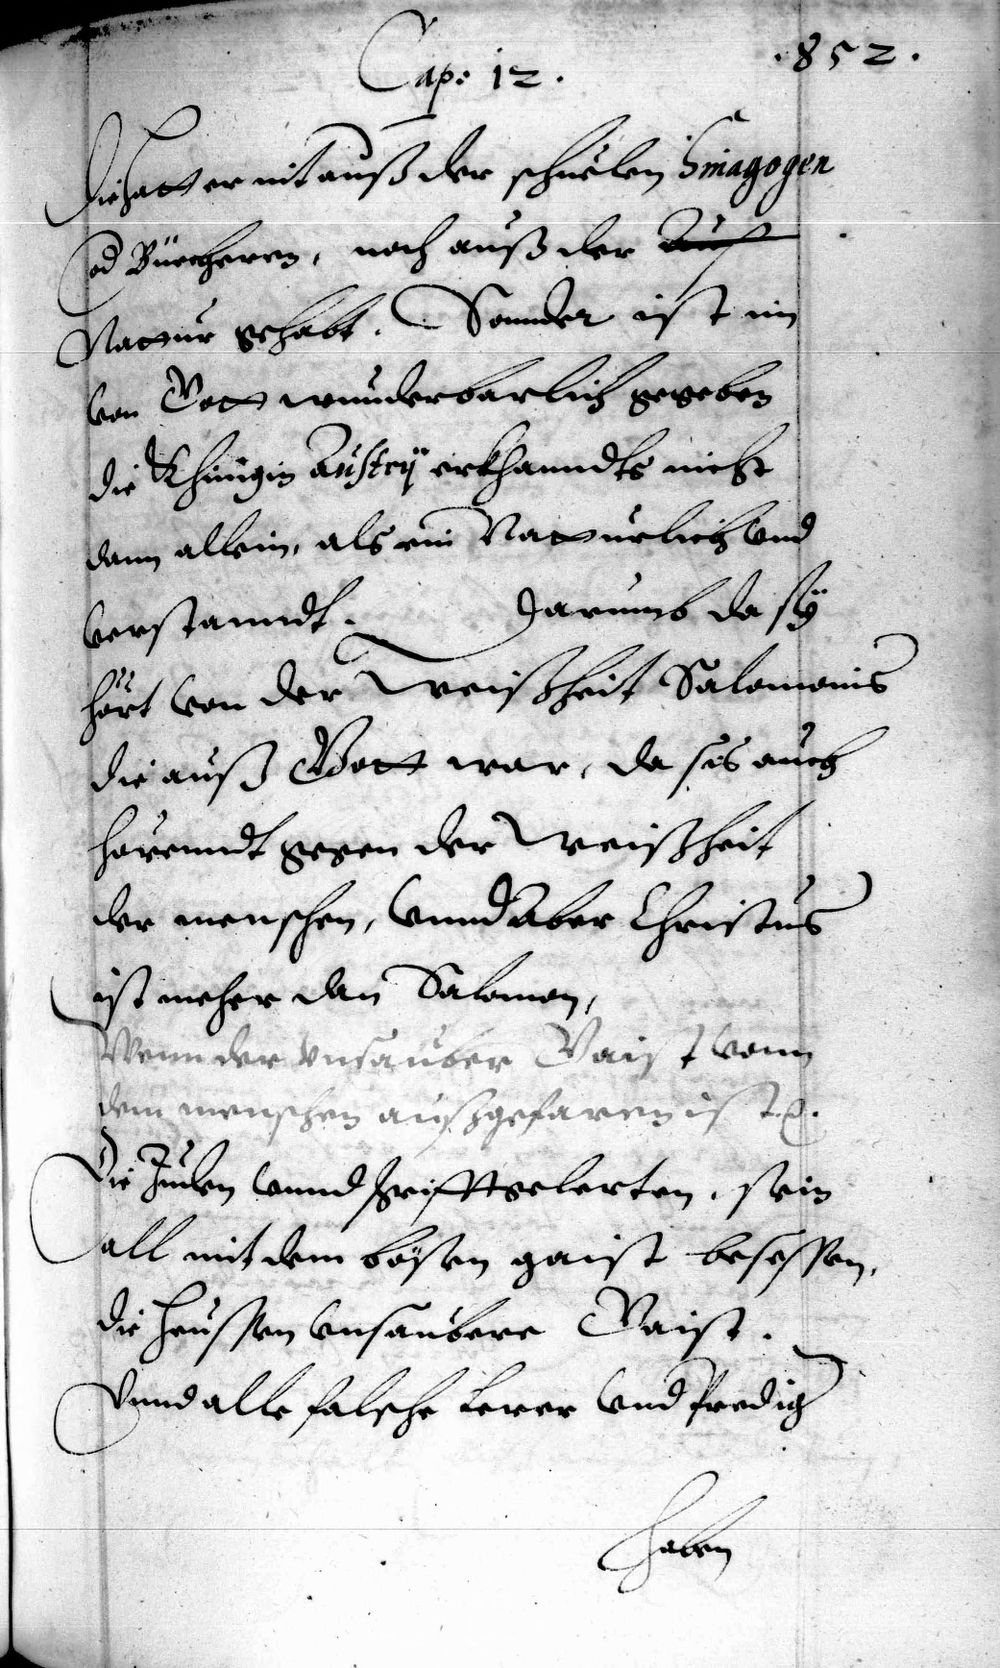 Cap: 12.
.852.
Die hatt er nit auß der schuelen Sinagogen
od Büecheren, noch auß der
Nattur gehabt. Sonnder ist im
von Gott wunderbarlich gegeben
die Khünigin Austrÿ erkhanndts nicht
dann allein, als ein Natturlich vnd
verstanndt. Darumb da sÿ
hört von der Weißheit Salomonis
die auß Gott war, da sis auch
gegen der Weißheit
der menschen, Vnnd aber Christus
ist meher dan Salomon,
Wenn der vnsauber Gaist vonn
dem menschen außgefaren ist
Die Juden vnnd schrifftgelerten, sein
all mit dem bösen gaist besessen,
die heussen vnsaubere Gaist.
Vnnd alle falsche Lerer vnd Predig
haben